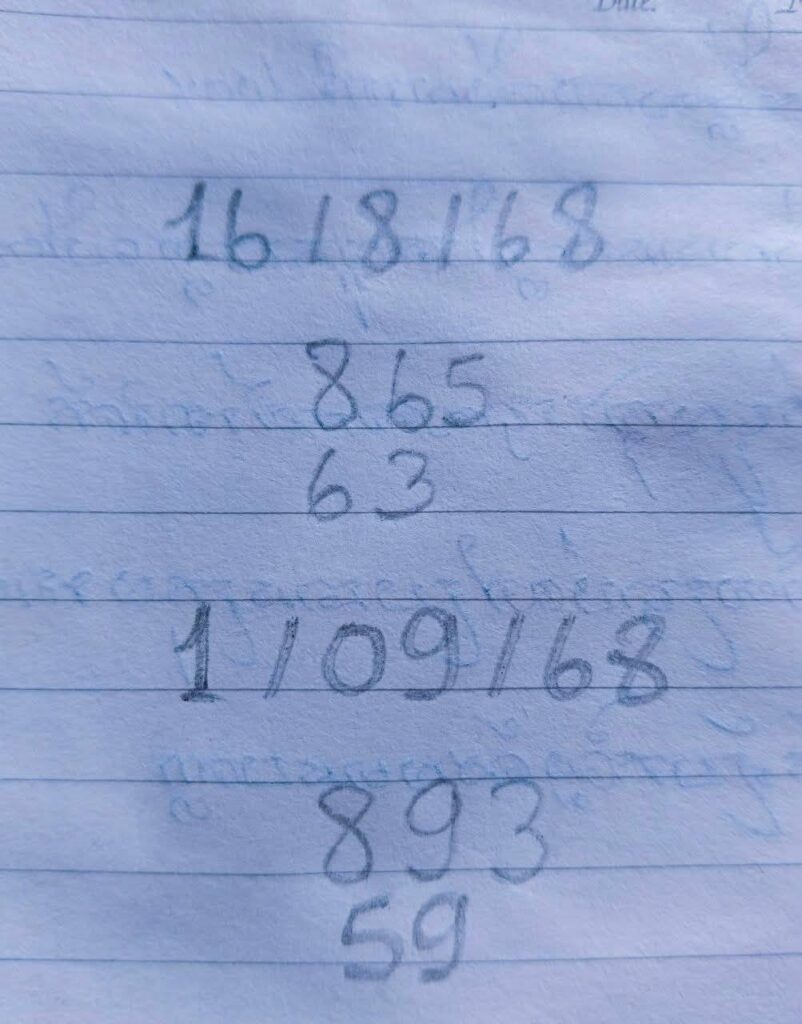 Date.
16/8/68
865
63
1/09/68
893
59